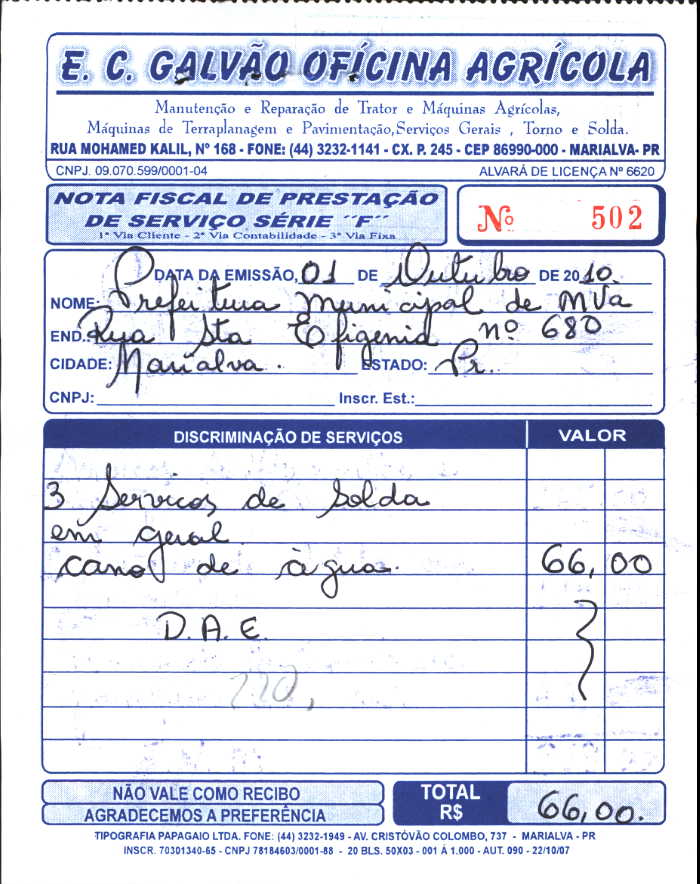 E. C. GALVÃO OFÍCINA AGRÍCOLA
Manutenção e Reparação de Trator e Máquinas Agrícolas,
Máquinas de Terraplanagem e Pavimentação,Serviços Gerais , Torno e Solda.
RUA MOHAMED KALIL, Nº 168 - FONE: (44) 3232-1141 - CX. P. 245 - CEP 86990-000 - MARIALVA- PR
CNPJ. 09.070.599/0001-04 ALVARÁ DE LICENÇA Nº 6620
NOTA FISCAL DE PRESTAÇÃO
DE SERVIÇO SÉRIE "F"
1ª Via Cliente - 2ª Via Contabilidade - 3ª Via Fixa
Nº 502
DATA DA EMISSÃO, 01 DE Outubro DE 2010.
NOME: Prefeitura Municipal de MVa
END.: Rua Sta Efigenia nº 680
CIDADE: Marialva. ESTADO: Pr.
CNPJ: Inscr. Est.:
DISCRIMINAÇÃO DE SERVIÇOS VALOR
3 Servicos de Solda
em geral
cano de àgua. 66,00
D.A.E.
220,
NÃO VALE COMO RECIBO
AGRADECEMOS A PREFERÊNCIA
TOTAL
R$ 66,00.
TIPOGRAFIA PAPAGAIO LTDA. FONE: (44) 3232-1949 - AV. CRISTÓVÃO COLOMBO, 737 - MARIALVA - PR
INSCR. 70301340-65 - CNPJ 78184603/0001-88 - 20 BLS. 50X03 - 001 À 1.000 - AUT. 090 - 22/10/07